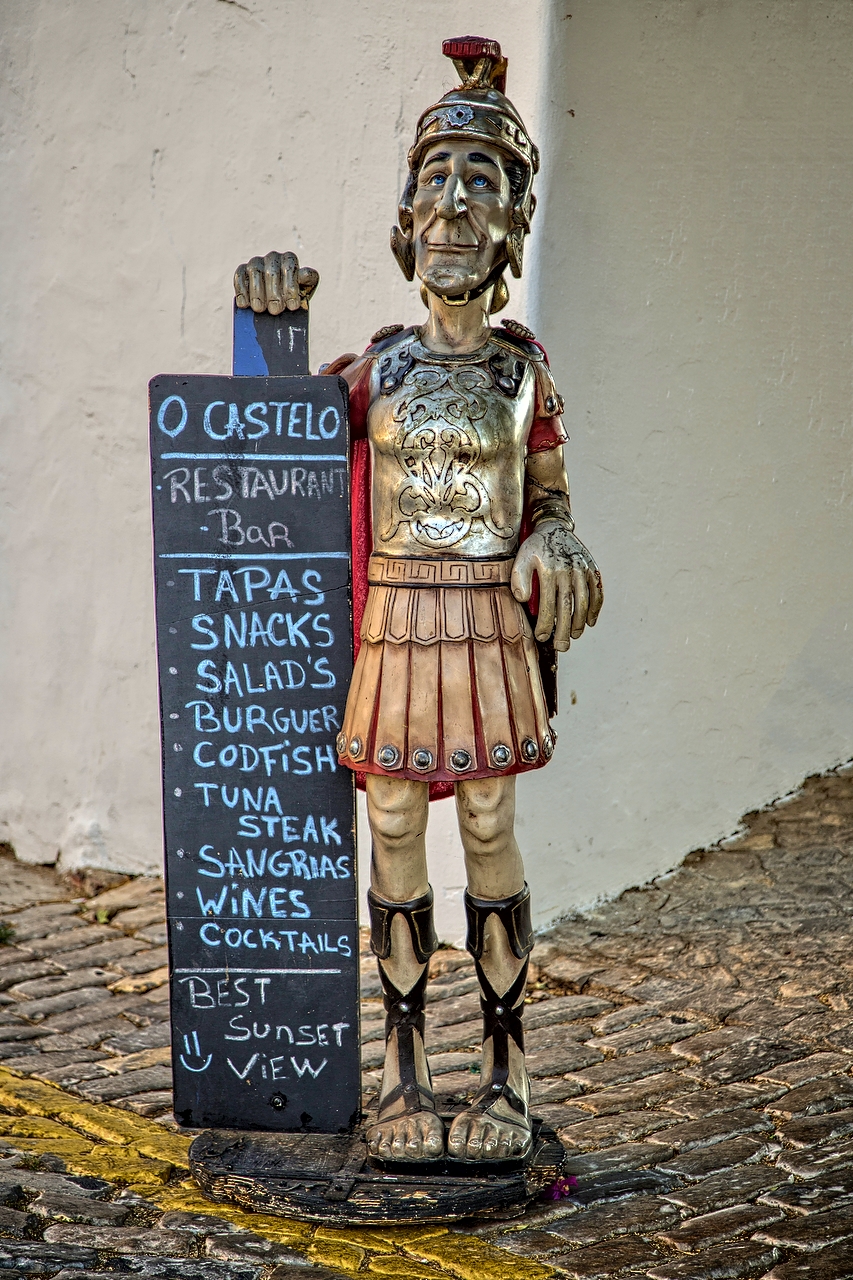 O CASTELO
RESTAURANT
BAR
TAPAS
SNACKS
SALAD'S
BURGUER
CODFiSH
TUNA
STEAK
SANGRIAS
WiNES
COCKTAILS
BEST
SUNSET
ViEW